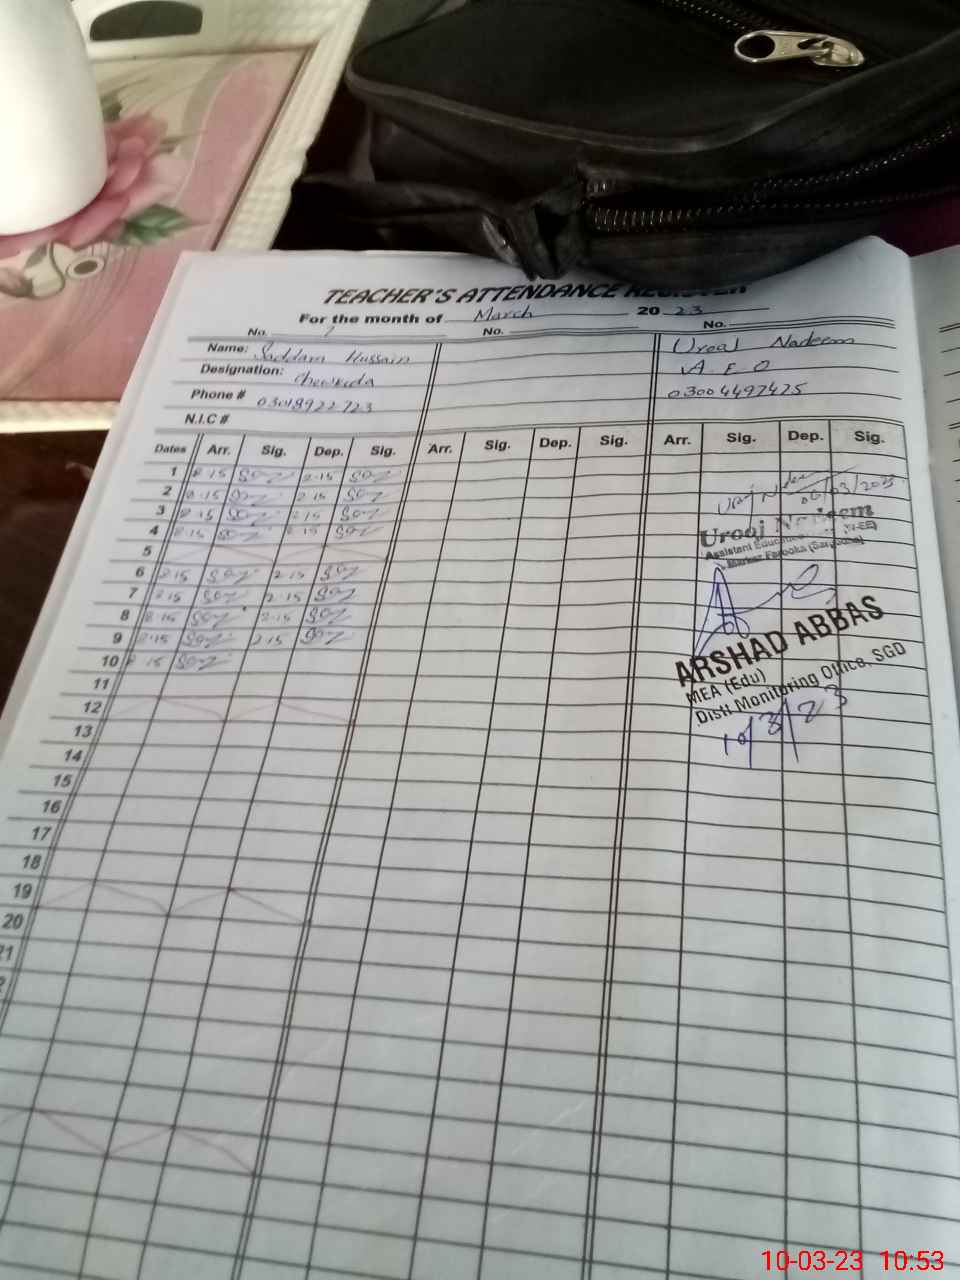 TEACHER'S ATTENDANCE REGISTER
For the month of March 20 23
No. 7 No. No.
Name: Saddam Hussain
Designation: Chowkida
Phone # 03018922723
N.I.C #
Urooj Nadeem
A. E O
03004497425
Dates Arr. Sig. Dep. Sig. Arr. Sig. Dep. Sig. Arr. Sig. Dep. Sig.
1 8.15 2.15
2 8.15 2.15
3 8.15 2.15
4 8.15 2.15
5
6 8.15 2.15
7 8.15 2.15
8 8.15 2.15
9 8.15 2.15
10 8.15
11
12
13
14
15
16
17
18
19
20
21
Urooj Nadeem
06/03/2023
Urooj Nadeem
Assistant Education
Markaz Farooka (Sargodha)
ARSHAD ABBAS
MEA (Edu)
Distt Monitoring Office, SGD
10/3/23
10-03-23 10:53